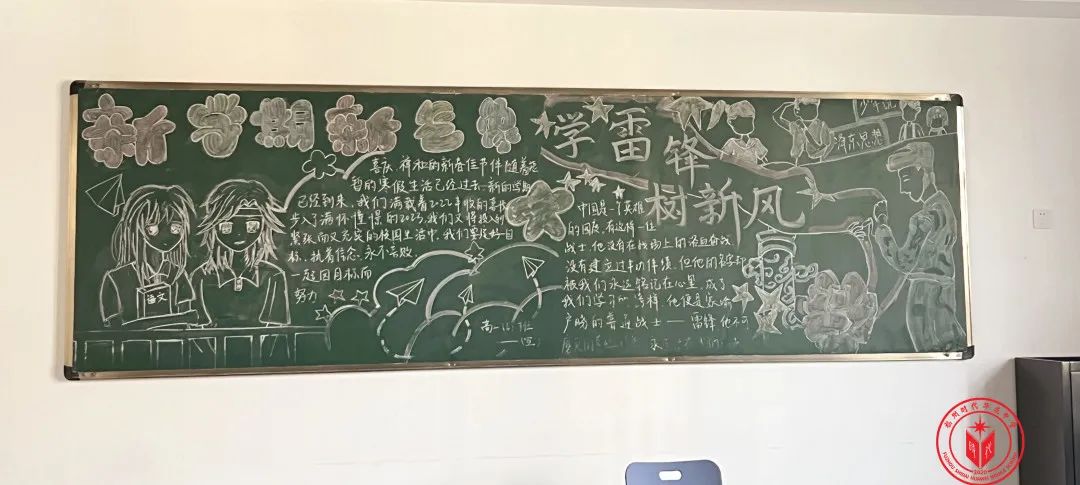 新学期 新气象
喜庆、祥和的新春佳节伴随着短
暂的寒假生活已经过去,新的学期
已经到来,我们满载着2022年收的喜悦
步入了满怀憧憬的2023,我们又将投入到
紧张而又充实的校园生活中,我们要设好目
标、执着信念、永不言败,
一起因目标而
努力
语文
高一 班
学雷锋
树新风
中国是一个英雄
的国度,有这样一位
战士,他没有在战场上的浴血奋战
没有建立过丰功伟绩,但他的名字却
被我们永远铭记在心里,成了
我们学习的榜样,他便是家喻
户晓的普通战士——雷锋 他不
泽东思想
福州时代华威中学
时代
2020
FUZHOU SHIDAI HUAWEI MIDDLE SCHOOL